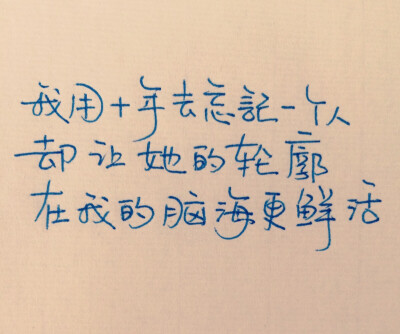 我用十年去忘記一个人
却让她的轮廓
在我的脑海更鲜活